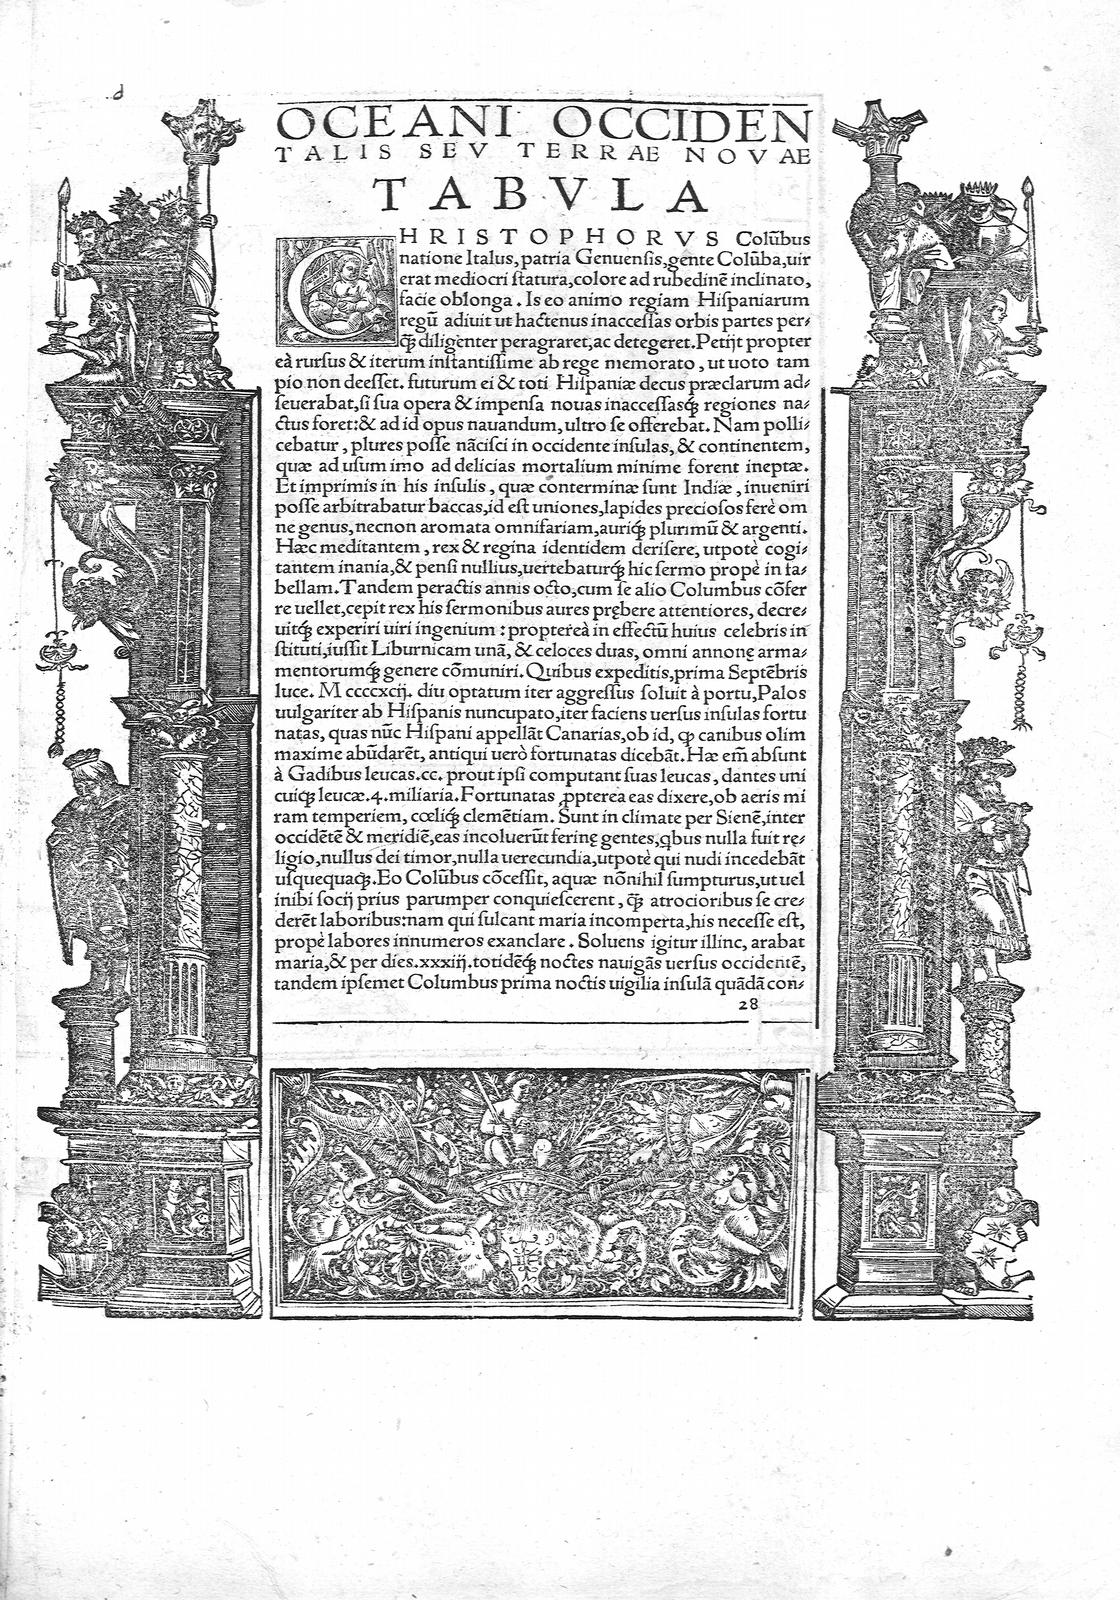 OCEANI OCCIDEN
TALIS SEV TERRAE NOVAE
TABVLA
CHRISTOPHORVS Colũbus
natione Italus, patria Genuensis, gente Colũba, uir
erat mediocri ſtatura, colore ad rubedinẽ inclinato,
facie oblonga. Is eo animo regiam Hiſpaniarum
regũ adiuit ut hactenus inacceſſas orbis partes per⸗
ꝗ̃ diligenter peragraret, ac detegeret. Petijt propter
eà rurſus & iterum inſtantiſſime ab rege memorato, ut uoto tam
pio non deeſſet. futurum ei & toti Hiſpaniæ decus præclarum ad⸗
ſeuerabat, ſi ſua opera & impenſa nouas inacceſſasq́ꝫ regiones na⸗
ctus foret: & ad id opus nauandum, ultro ſe offerebat. Nam polli⸗
cebatur, plures poſſe nãciſci in occidente inſulas, & continentem,
quæ ad uſum imo ad delicias mortalium minime forent ineptæ.
Et imprimis in his inſulis, quæ conterminæ ſunt Indiæ, inueniri
poſſe arbitrabatur baccas, id eſt uniones, lapides precioſos ferè om
ne genus, necnon aromata omnifariam, auriq́ꝫ plurimũ & argenti.
Hæc meditantem, rex & regina identidem deriſere, utpotè cogi⸗
tantem inania, & penſi nullius, uertebaturq́ꝫ hic ſermo propè in fa⸗
bellam. Tandem peractis annis octo, cum ſe alio Columbus cõfer
re uellet, cepit rex his ſermonibus aures prębere attentiores, decre⸗
uitq́ꝫ experiri uiri ingenium: proptereà in effectũ huius celebris in
ſtituti, iuſſit Liburnicam unã, & celoces duas, omni annonę arma⸗
mentorumq́ꝫ genere cõmuniri. Quibus expeditis, prima Septẽbris
luce. M ccccxcij. diu optatum iter aggreſſus ſoluit à portu, Palos
uulgariter ab Hiſpanis nuncupato, iter faciens uerſus inſulas fortu
natas, quas nũc Hiſpani appellãt Canarias, ob id, ꝙ canibus olim
maxime abũdarẽt, antiqui uerò fortunatas dicebãt. Hæ em̃ abſunt
à Gadibus leucas.cc. prout ipſi computant ſuas leucas, dantes uni
cuiq́ꝫ leucæ.4.miliaria. Fortunatas ꝓpterea eas dixere, ob aeris mi
ram temperiem, cœliq́ꝫ clemẽtiam. Sunt in climate per Sienẽ, inter
occidẽtẽ & meridiẽ, eas incoluerũt ferinę gentes, qbus nulla fuit rę⸗
ligio, nullus dei timor, nulla uerecundia, utpotè qui nudi incedebãt
uſquequaq́ꝫ. Eo Colũbus cõceſſit, aquæ nõnihil ſumpturus, ut uel
inibi ſocij prius parumper conquieſcerent, ꝗ̃ atrocioribus ſe cre⸗
derẽt laboribus: nam qui ſulcant maria incomperta, his neceſſe eſt,
propè labores innumeros exanclare. Soluens igitur illinc, arabat
maria, & per dies.xxxiij.totidẽq́ꝫ noctes nauigãs uerſus occidentẽ,
tandem ipſemet Columbus prima noctis uigilia inſulã quãdã con⸗
28